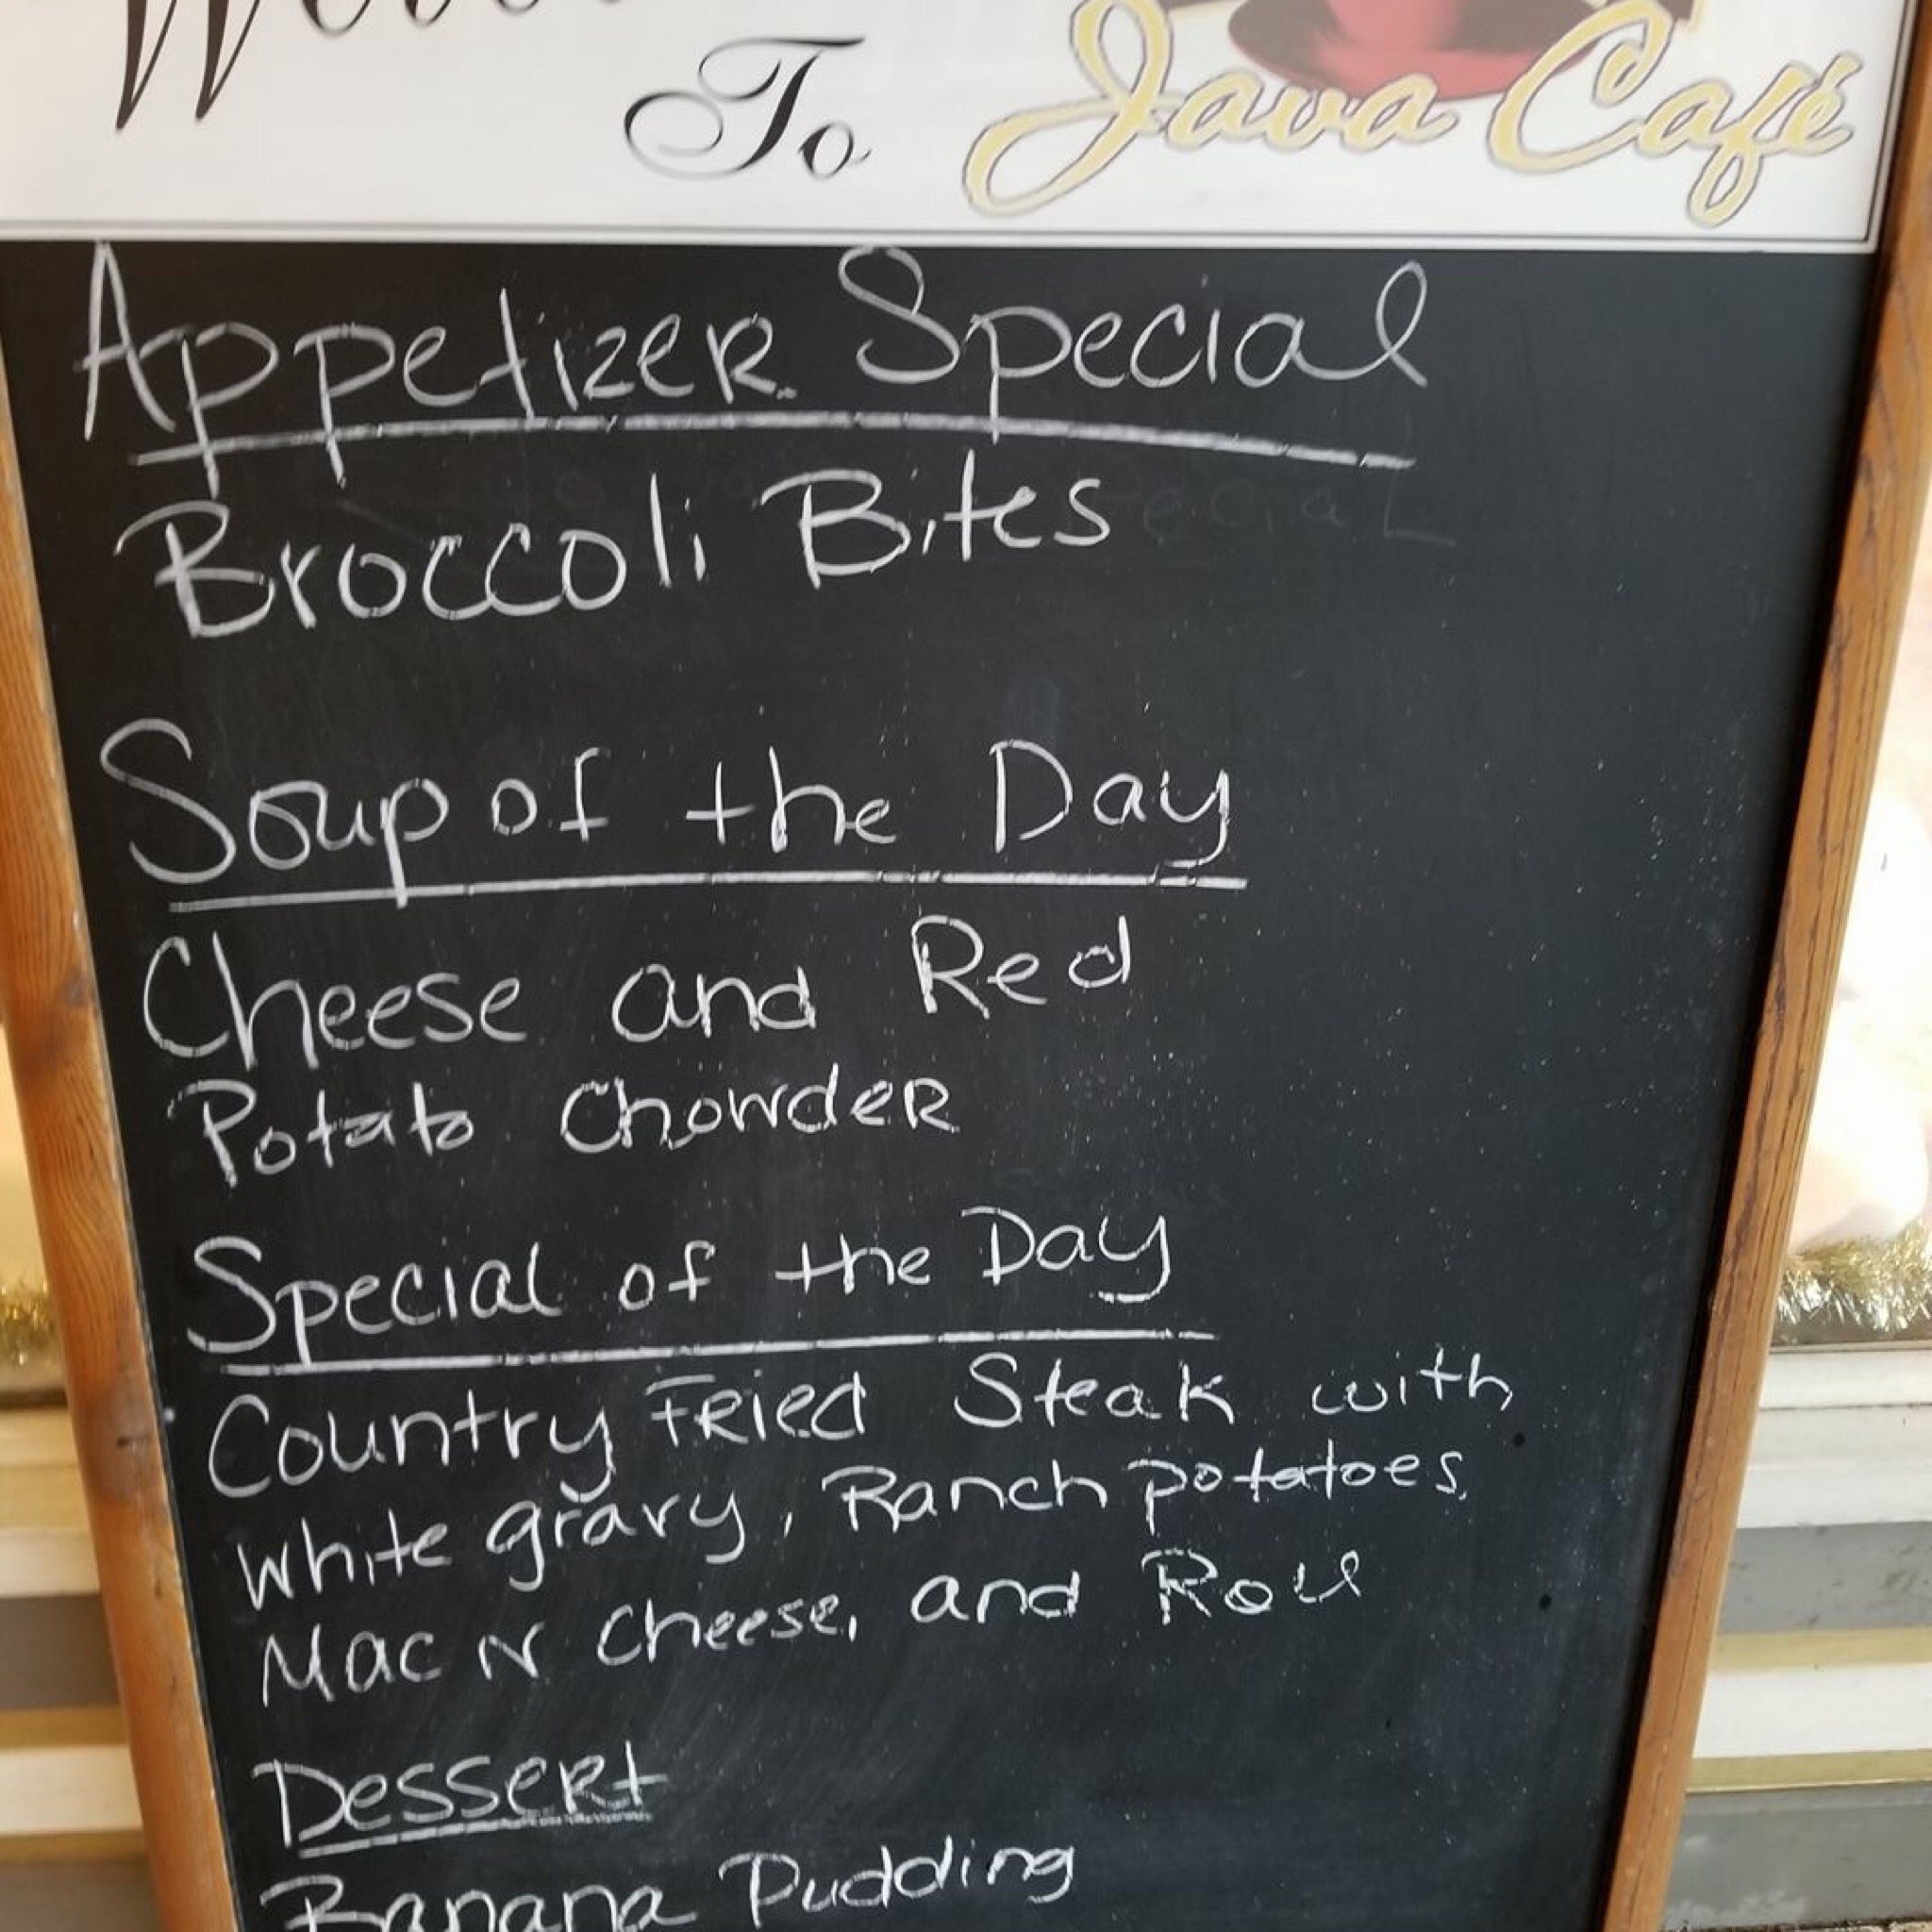 To Java Café
Appetizer Special
Broccoli Bites
Soup of the Day
Cheese and Red
Potato Chowder
Special of the Day
Country Fried Steak with
white gravy, Ranch potatoes,
Mac N Cheese, and Roll
Dessert
Banana Pudding